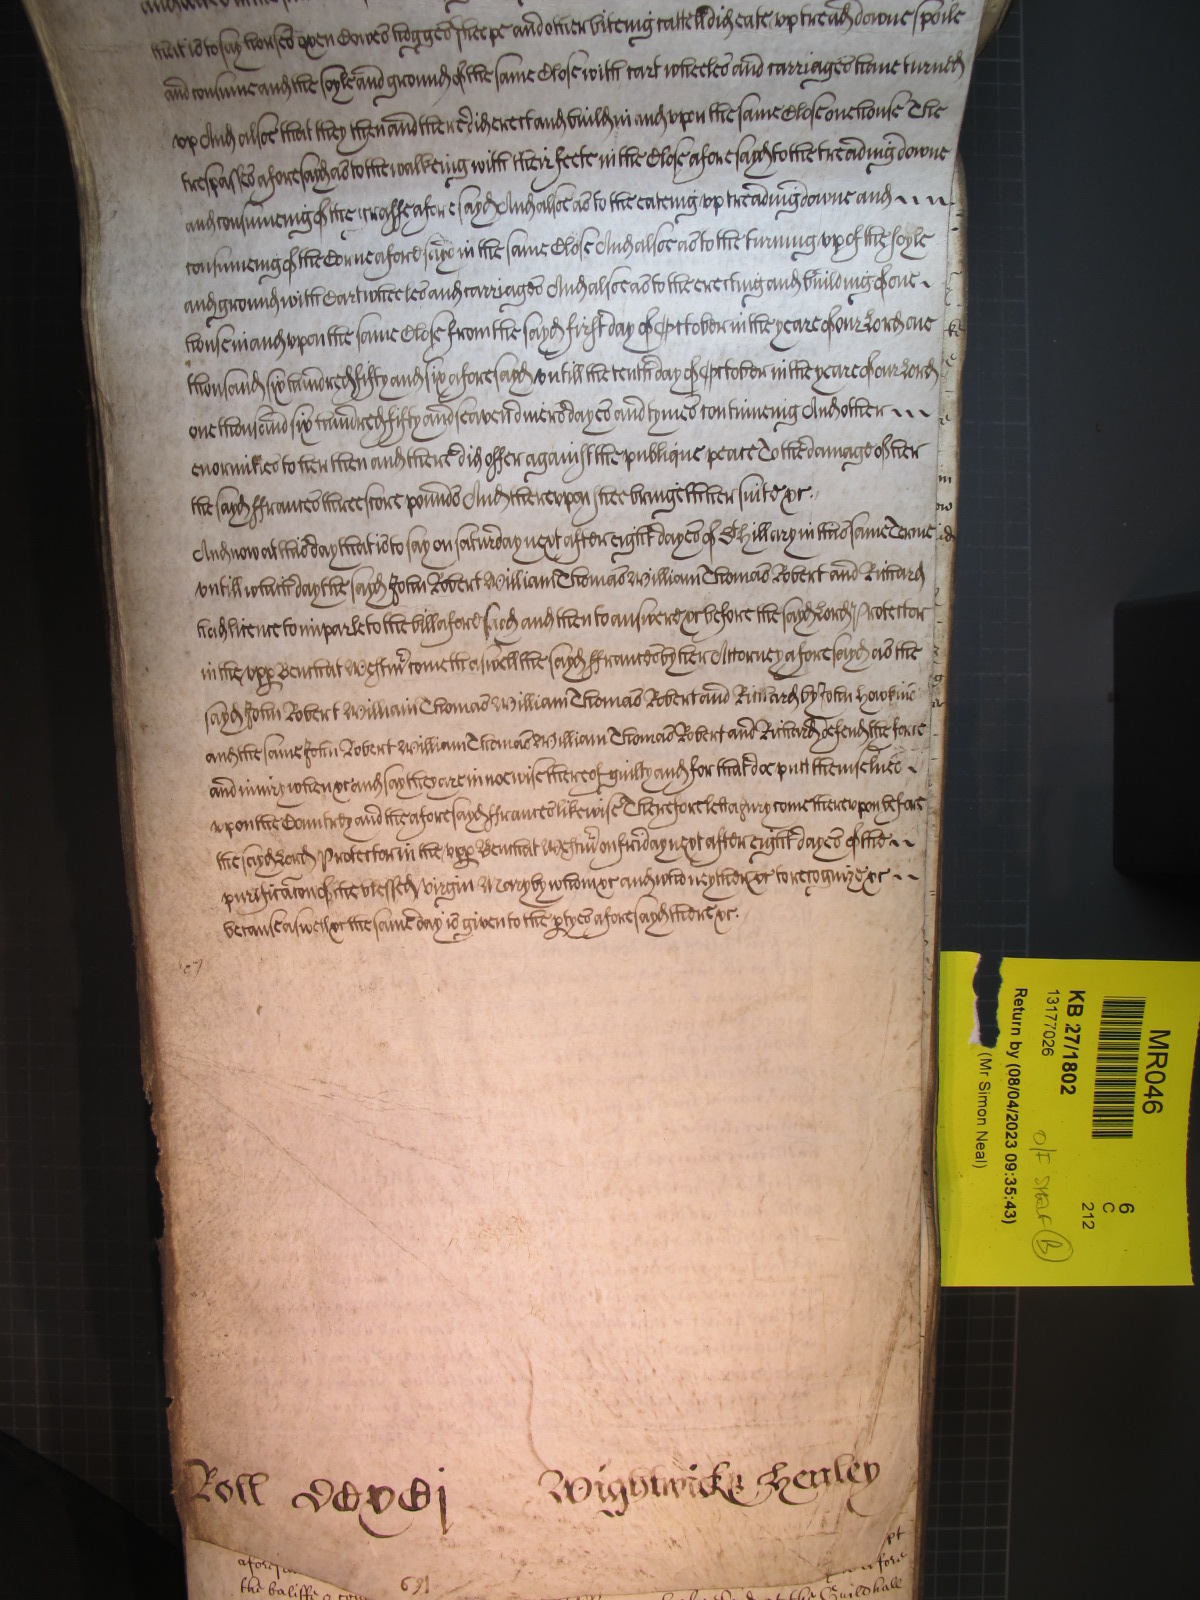 that is to say horses oxen Cowes hogges sheepe and other biteing cattell did eate up tread downe spoile
and consume and the soyle and ground of the same Close with cart wheeles and carriages have turned
up And alsoe that they then and there did erect and build in and upon the same Close one house The
trespasses aforesayd as to the walkeing with their feete in the Close aforesayd to the treading downe
and consumeing of the grasse aforesayd And alsoe as to the eateing up treading downe and
consumeing of the Corne aforesayd in the same Close And alsoe as to the turning up of the soyle
and ground with Cart wheeles and carriages And alsoe as to the erecting and building of one
house in and upon the same Close from the sayd first day of October in the yeare of our Lord one
thousand six hundred fifty and six aforesayd untill the tenth day of October in the yeare of our Lord
one thousand six hundred fifty and seaven divers dayes and tymes continueing And other
enormities to her then and there did offer against the publique peace To the damage of her
the sayd ffrances threescore pounds And thereupon shee bringeth her suite &c.
And now at this day that is to say on Saturday next after eight dayes of St Hillary in this same Terme
untill which day the sayd John Robert William Thomas William Thomas Robert and Richard
had licence to imparle to the bill aforesaid and then to answere &c before the sayd Lord Protector
in the upp Bench at Westmr cometh aswell the sayd ffrances by her Attorney aforesayd as the
sayd John Robert William Thomas William Thomas Robert and Richard by John Hawkins
and the same John Robert William Thomas William Thomas Robert and Richard defend the force
and iniury when &c and say they are in noe wise thereof guilty and for that doe putt themselves
upon the Countrey and the aforesayd ffrances likewise Therefore lett a jury come thereupon before
the sayd Lord Protector in the upp Bench at Westmr on friday next after eight dayes of the
purificacon of the blessed virgin Mary by whom &c and who neyther &c to recognize &c
because aswell &c the same day is given to the ptyes aforesayd there &c.
Roll
Wightwicke Henley
691
the baliffe
the Guildhall
MR046
6
C
212
KB 27/1802
13177026
Return by (08/04/2023 09:35:43)
(Mr Simon Neal)
O/F SHELF (B)